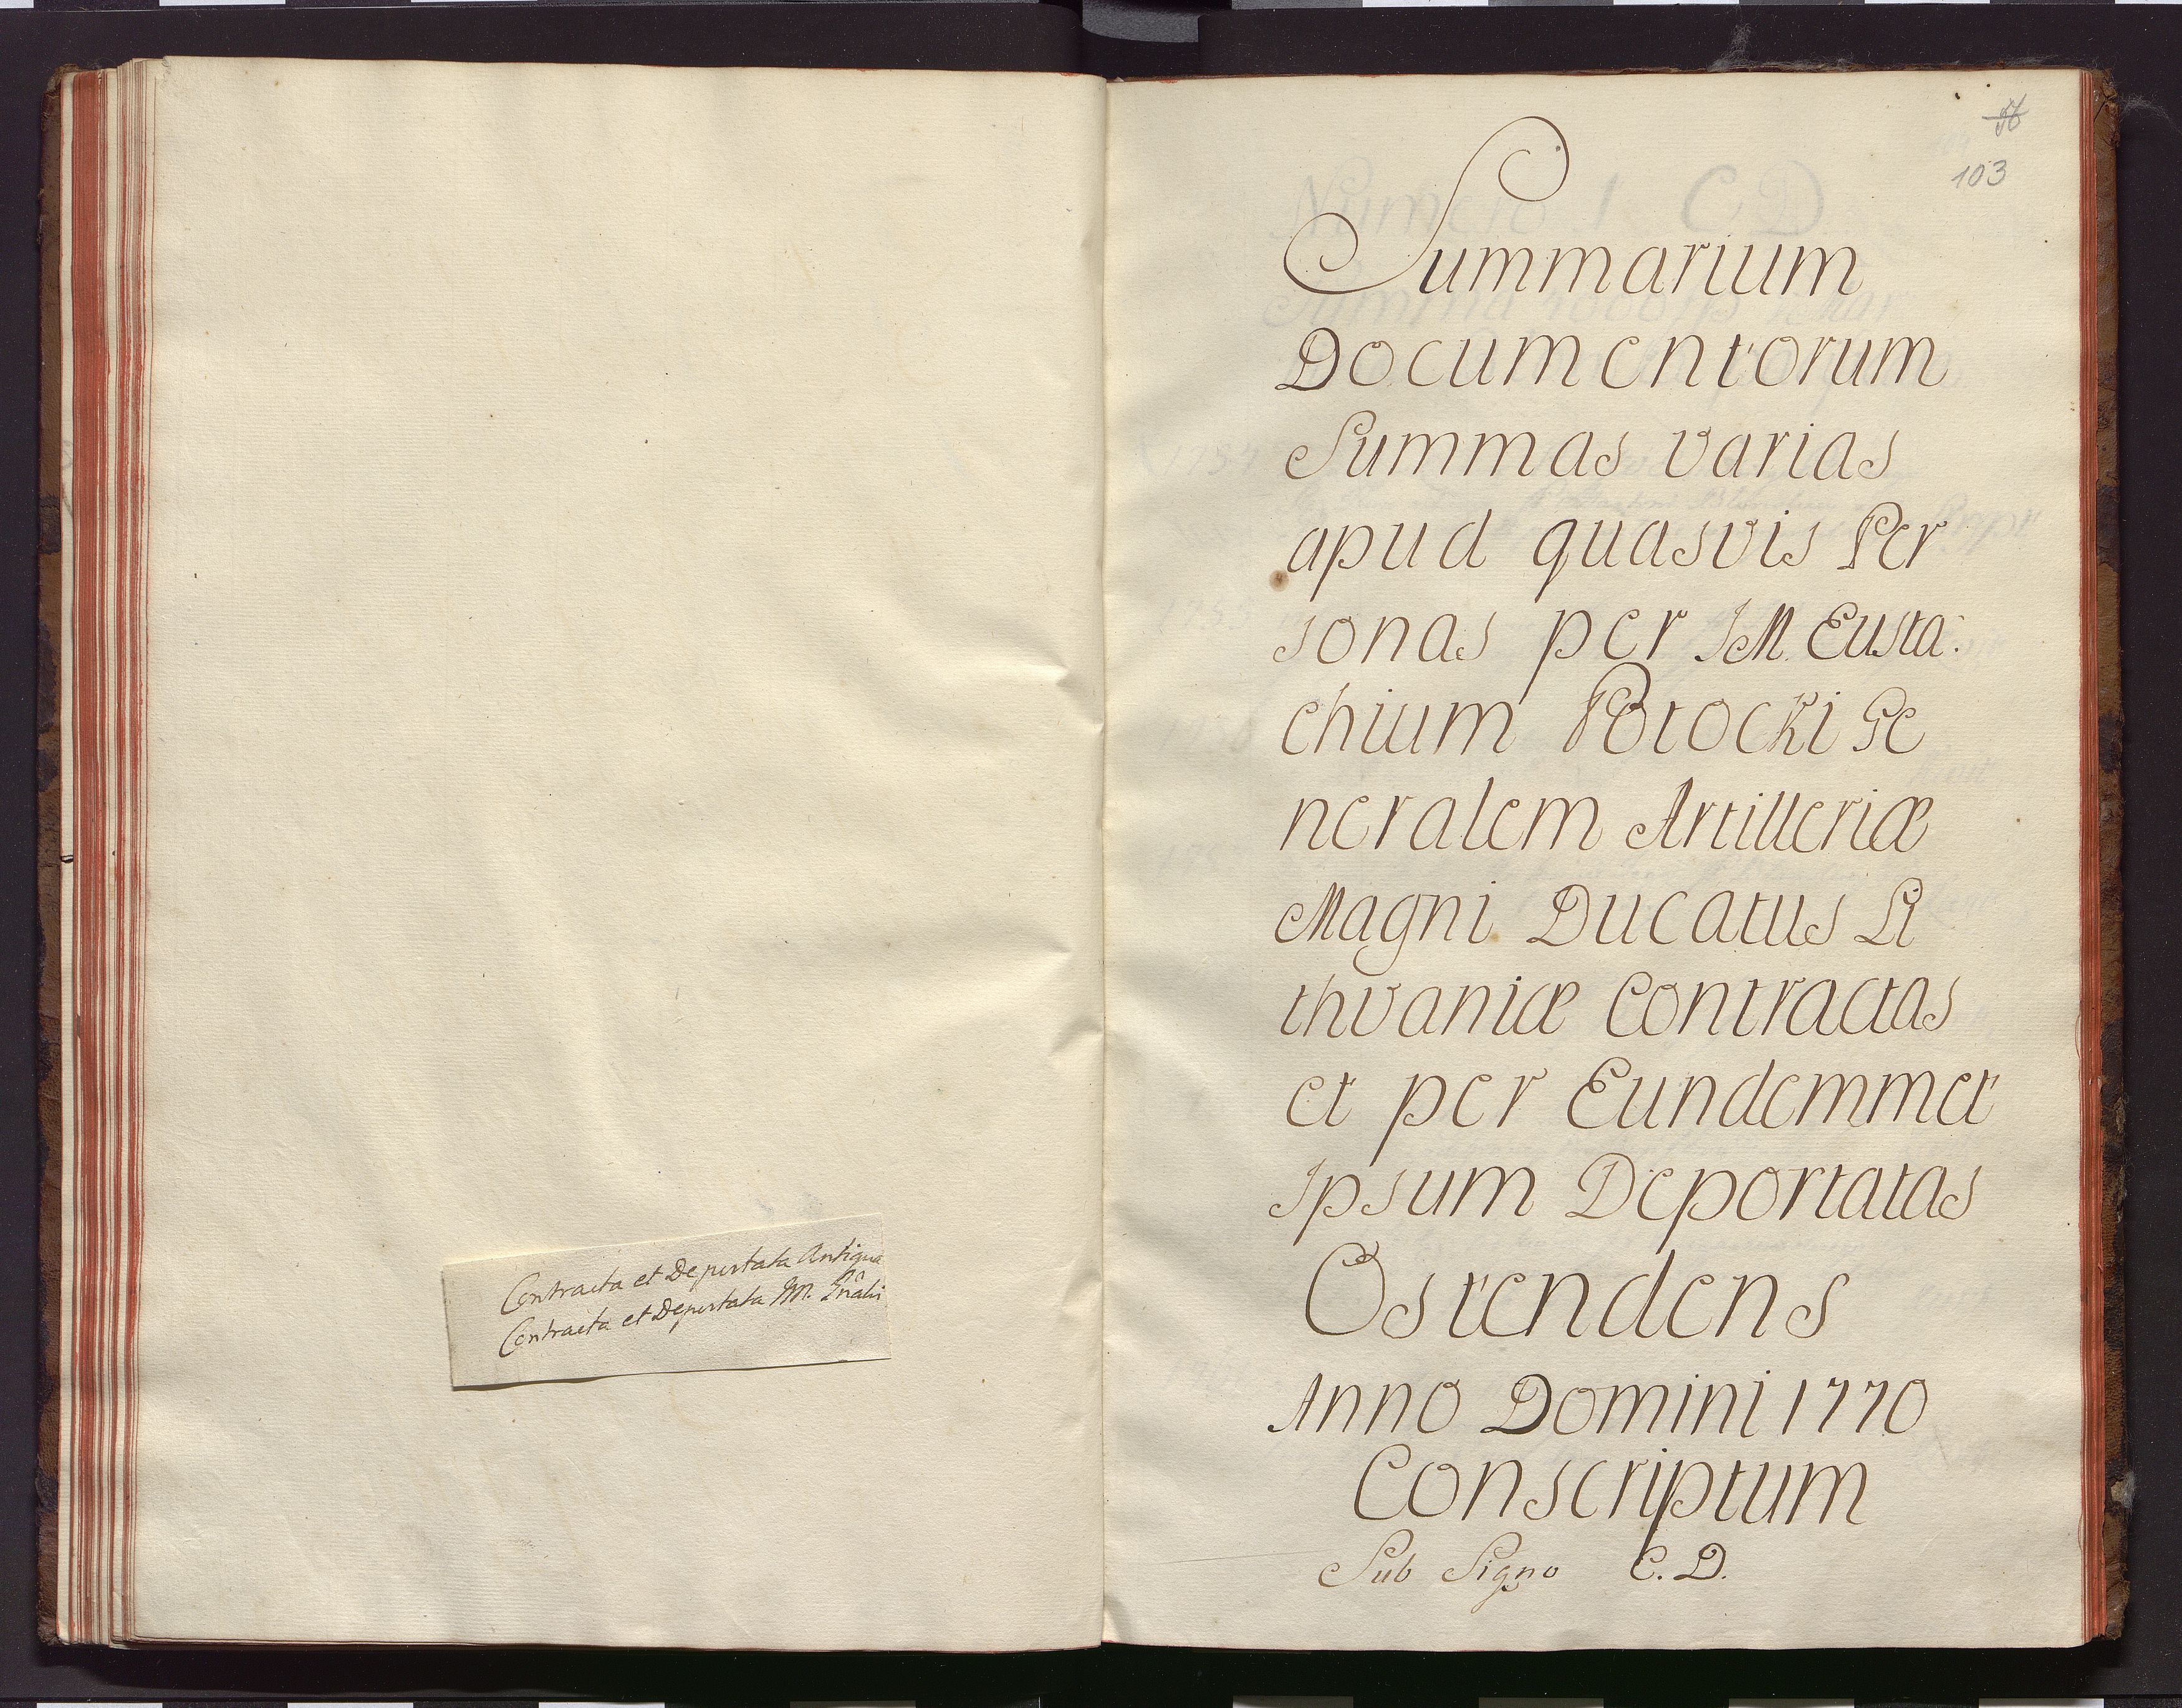 Contracta et Deportata Antiqua
Contracta et Deportata JM.
56
103
Summarium
Documentorum
Summas varias
apud quasvis Per
sonas per JM. Eusta:
chium Potocki Ge
neralem Artilleriæ
Magni Ducatus Li
thvaniæ Contractas
et per Eundemmet
Ipsum Deportatas
Ostendens
Anno Domini 1770
Conscriptum
Sub Signo C. D.